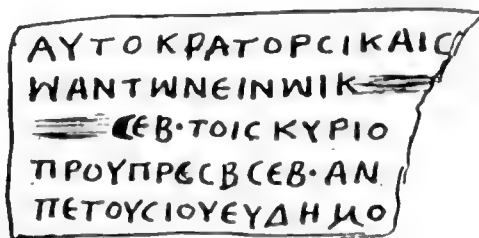 ΑΥΤΟΚΡΑΤΟΡϹΙΚΑΙϹ
ΩΑΝΤΩΝΕΙΝΩΙΚ
ϹΕΒ·ΤΟΙϹΚΥΡΙΟ
ΠΡΟΥΠΡΕϹΒϹΕΒ·ΑΝ
ΠΕΤΟΥϹΙΟΥΕΥΔΗΜΟ